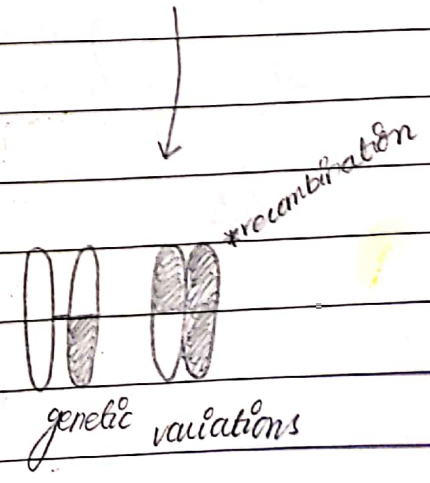 *recombination
genetic variations